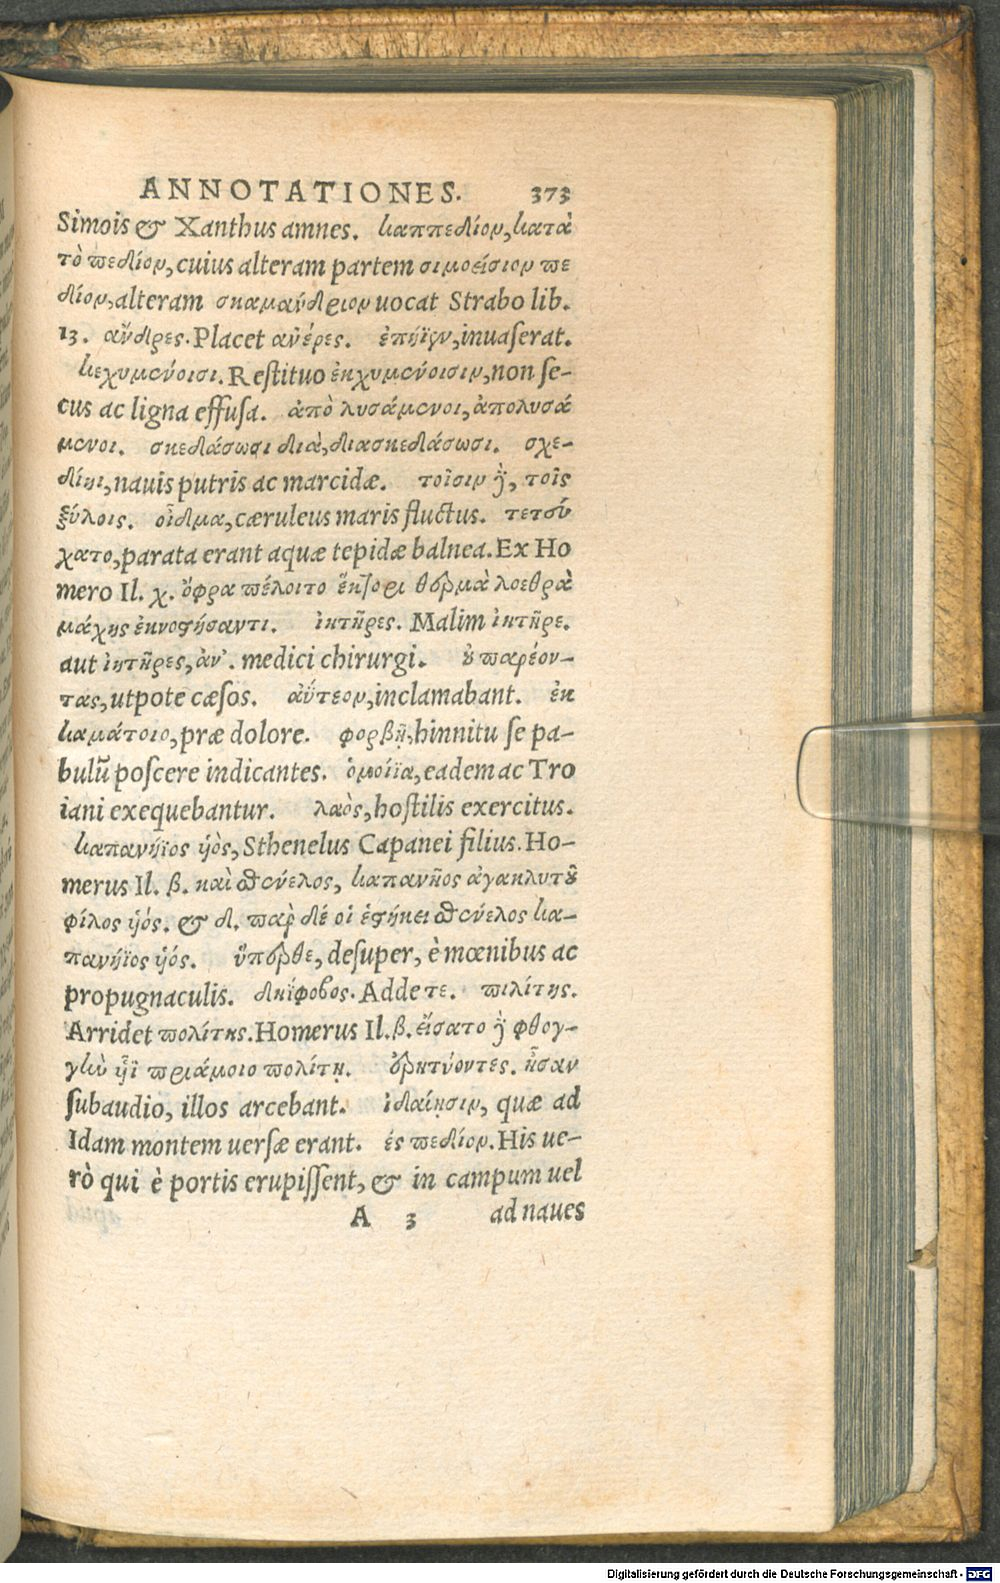 ANNOTATIONES. 373
Simois & Xanthus amnes. καππεδίον, κατὰ
τὸ πεδίον, cuius alteram partem σιμοείσιον πε
δίον, alteram σκαμάνδριον uocat Strabo lib.
13. ἄνδρες. Placet ἀνέρες. ἐπήϊεν, inuaserat.
κεχυμένοισι. Restituo ἐκχυμένοισιν, non se-
cus ac ligna effusa. ἀπὸ λυσάμενοι, ἀπολυσά
μενοι. σκεδάσωσι διὰ, διασκεδάσωσι. σχε-
δίηι, nauis putris ac marcidæ. τοῖσιν γ, τοῖς
ξύλοις. οἶδμα, cæruleus maris fluctus. τετεύ
χατο, parata erant aquæ tepidæ balnea. Ex Ho
mero Il. χ. ὄφρα πέλοιτο ἕκτορι θερμὰ λοεθρὰ
μάχης ἐκνοστήσαντι. ἰητῆρες. Malim ἰητῆρε.
aut ἰητῆρες, ἀν'. medici chirurgi. ȣ παρέον-
τας, utpote cæsos. ἀΰτεον, inclamabant. ἐκ
καμάτοιο, præ dolore. φορβῇ, hinnitu se pa-
bulũ poscere indicantes. ὁμοίϊα, eadem ac Tro
iani exequebantur. λαὸς, hostilis exercitus.
καπανήϊος ὑὸς, Sthenelus Capanei filius. Ho-
merus Il. β. καὶ σθένελος, καπανῆος ἀγακλυτȣ͂
φίλος ὑός. & δ. παρ δέ οἱ ἑστήκει σθένελος κα-
πανήϊος ὑός. ὕπερθε, desuper, è mœnibus ac
propugnaculis. δηΐφοβος. Adde τε. πιλίτης.
Arridet πολίτης. Homerus Il. β. εἴσατο δὲ φθογ-
γὴν υἷϊ πριάμοιο πολίτῃ. ἐρητύοντες. ἦσαν
subaudio, illos arcebant. ἰδαίῃσιν, quæ ad
Idam montem uersæ erant. ἐς πεδίον. His ue-
rò qui è portis erupissent, & in campum uel
A 3 ad naues
Digitalisierung gefördert durch die Deutsche Forschungsgemeinschaft - DFG